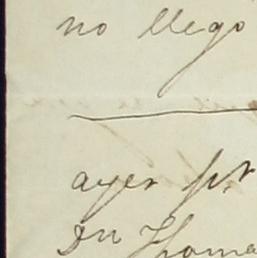 no llego
ayer
Dn Thoma